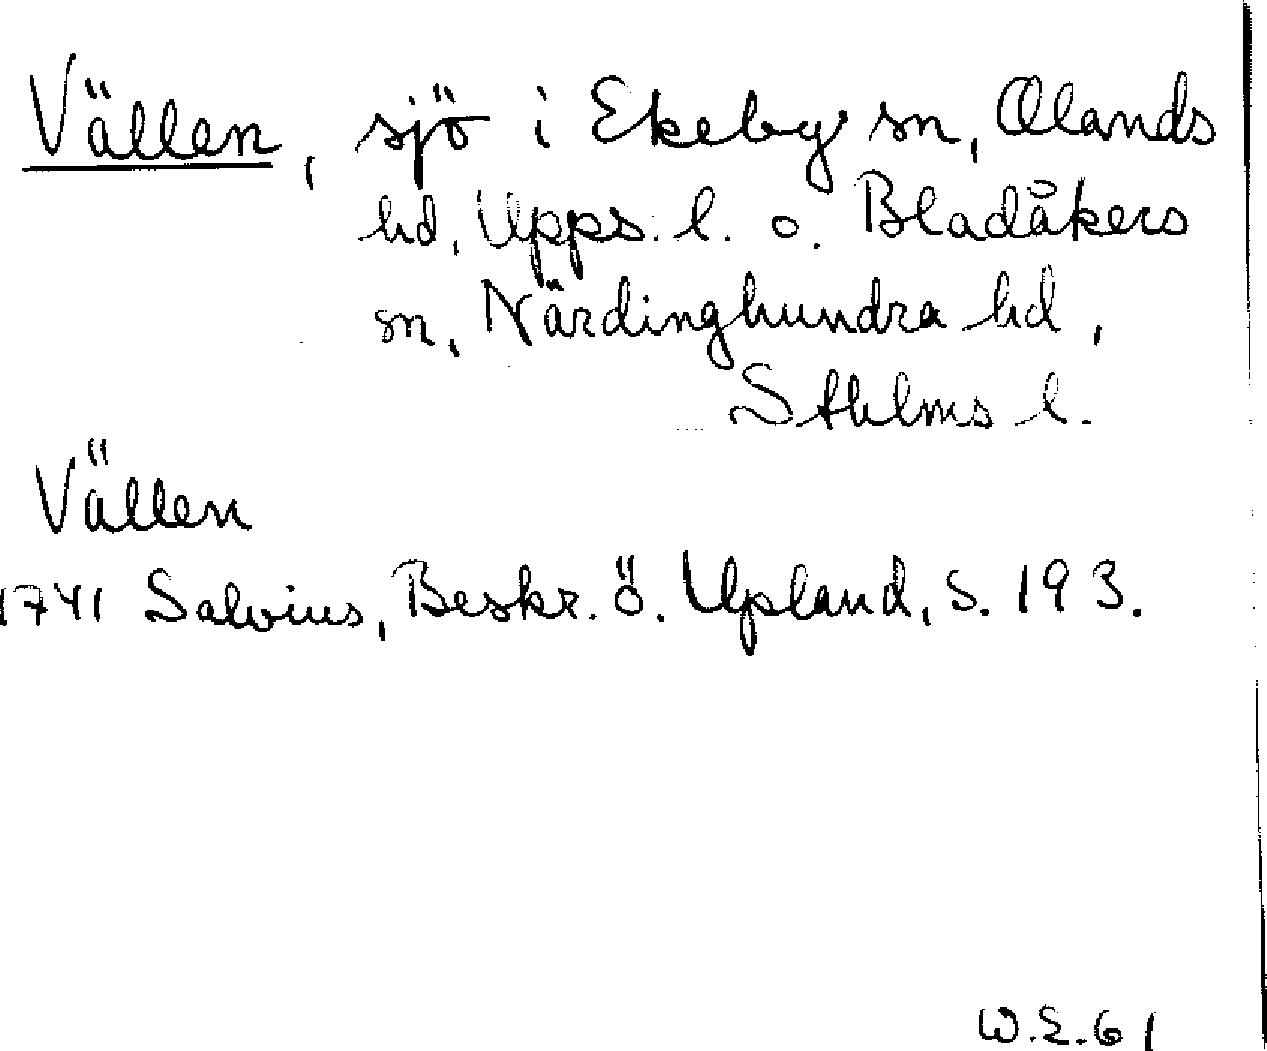 Vällen, sjö i Ekeby sn, Olands
hd, Upps. l. o. Bladåkers
sn, Närdinghundra hd,
Sthlms l.
Vällen
1741 Salvius, Beskr. ö. Upland, S. 193.
W.E.61